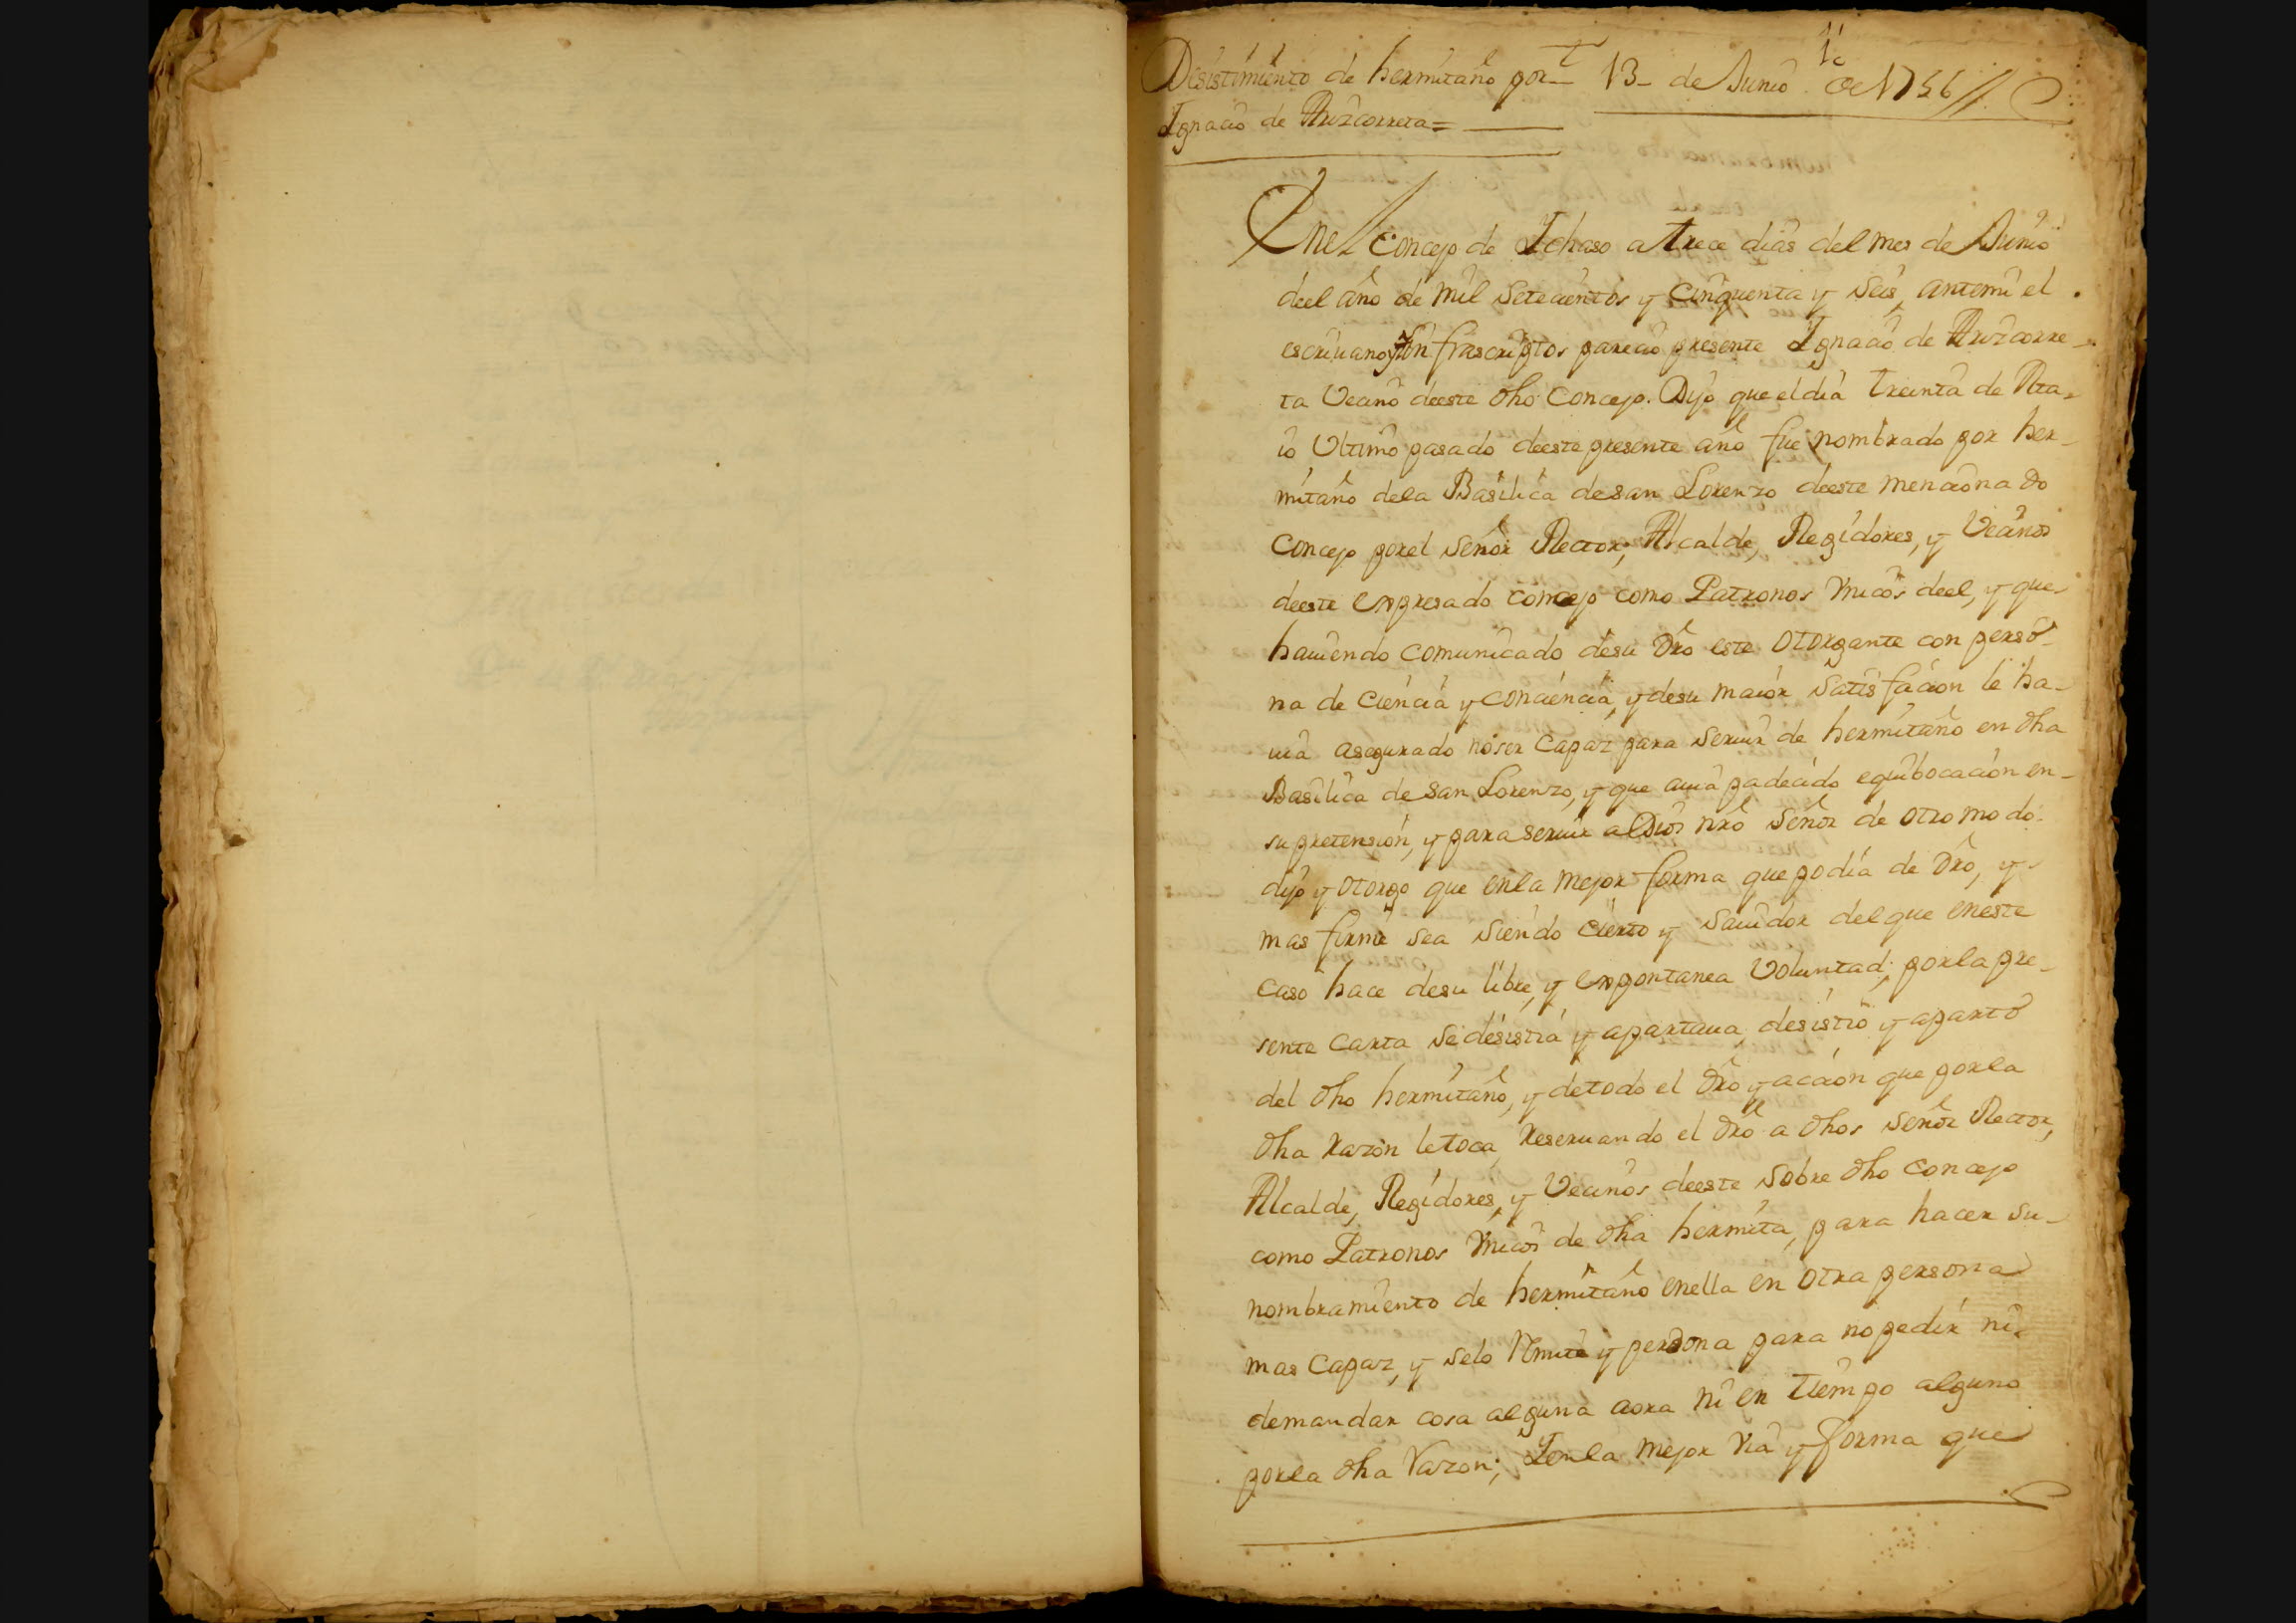 Desistimiento de hermitaño por 13 de Junio de 1756
Ignacio de Aruzcorreta=
Enel Concejo de Ichaso a trece dias del mes de Junio
deel año de mil setecientos y cinquenta y seis, antemi el
escriuano y infrascriptos parecio presente Ignacio de Aruzcorre-
ta Vecino deeste dho Concejo. Dijo que el dia treinta de Ma-
io Ultimo pasado deeste presente año fue nombrado por her-
mitaño dela Basilica desan Lorenzo deeste mencionado
Concejo porel señor Rector, Alcalde, Regidores, y Vecinos
deeste expresado concejo como Patronos Vnicos deel, y que
hauiendo comunicado desu dro este otorgante con perso-
na de Ciencia y conciencia, y desu maior satisfacion le ha-
uia asegurado noser capaz para seruir de hermitaño en dha
Basilica de san Lorenzo, y que auia padecido equibocacion en-
su pretension, y para seruir a Dios nro señor de otro modo
dijo y otorgo que enla mejor forma que podia de dro, y
mas firme sea siendo cierto y sauidor del que eneste
caso hace desu libre, y expontanea Voluntad, porla pre-
sente carta se desistia y apartaua, desistio y aparto
del dho hermitaño, y detodo el dro y acción que porla
dha razon letoca, reseruando el dro a dhos señor Rector,
Alcalde, Regidores, y Vecinos deeste sobre dho concejo
como Patronos Vnicos de dha hermita, para hacer su-
nombramiento de hermitaño enella en otra persona
mas capaz, y selo Rmite y perdona para no pedir ni
demandar cosa alguna aora ni en tiempo alguno
porla dha razon; Ienla mejor via y forma que